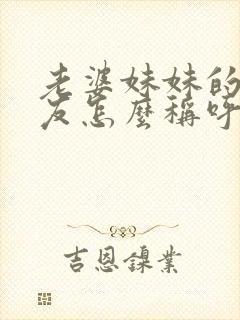 老婆妹妹的
友怎麼稱呼
吉恩鎳業